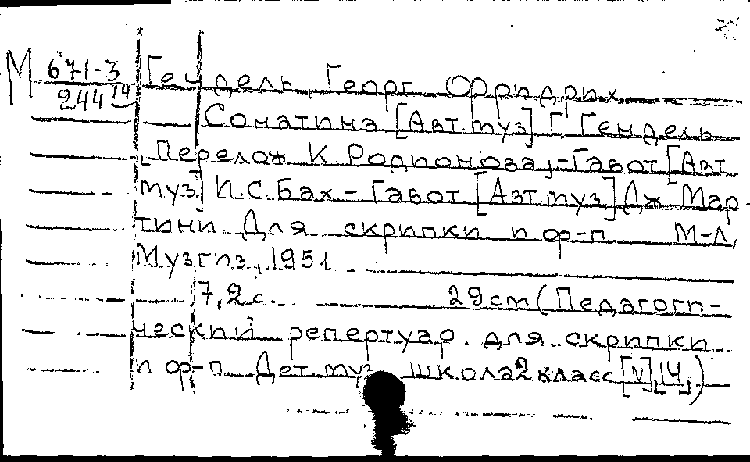 М 671-3 Гендель, Георг Фридрих
244 14
Сонатина [Авт. муз] Г. Гендель
Перелож К Родионова, - Гавот [Авт
муз] И.С. Бах - Гавот [Авт муз] Дж Мар-
тини Для скрипки и ф-п М-Л,
Музгиз, 1951
7, 2 с. 29 см (Педагоги-
ческий репертуар для скрипки
и ф-п Дет муз школа 2 класс [N] 14)